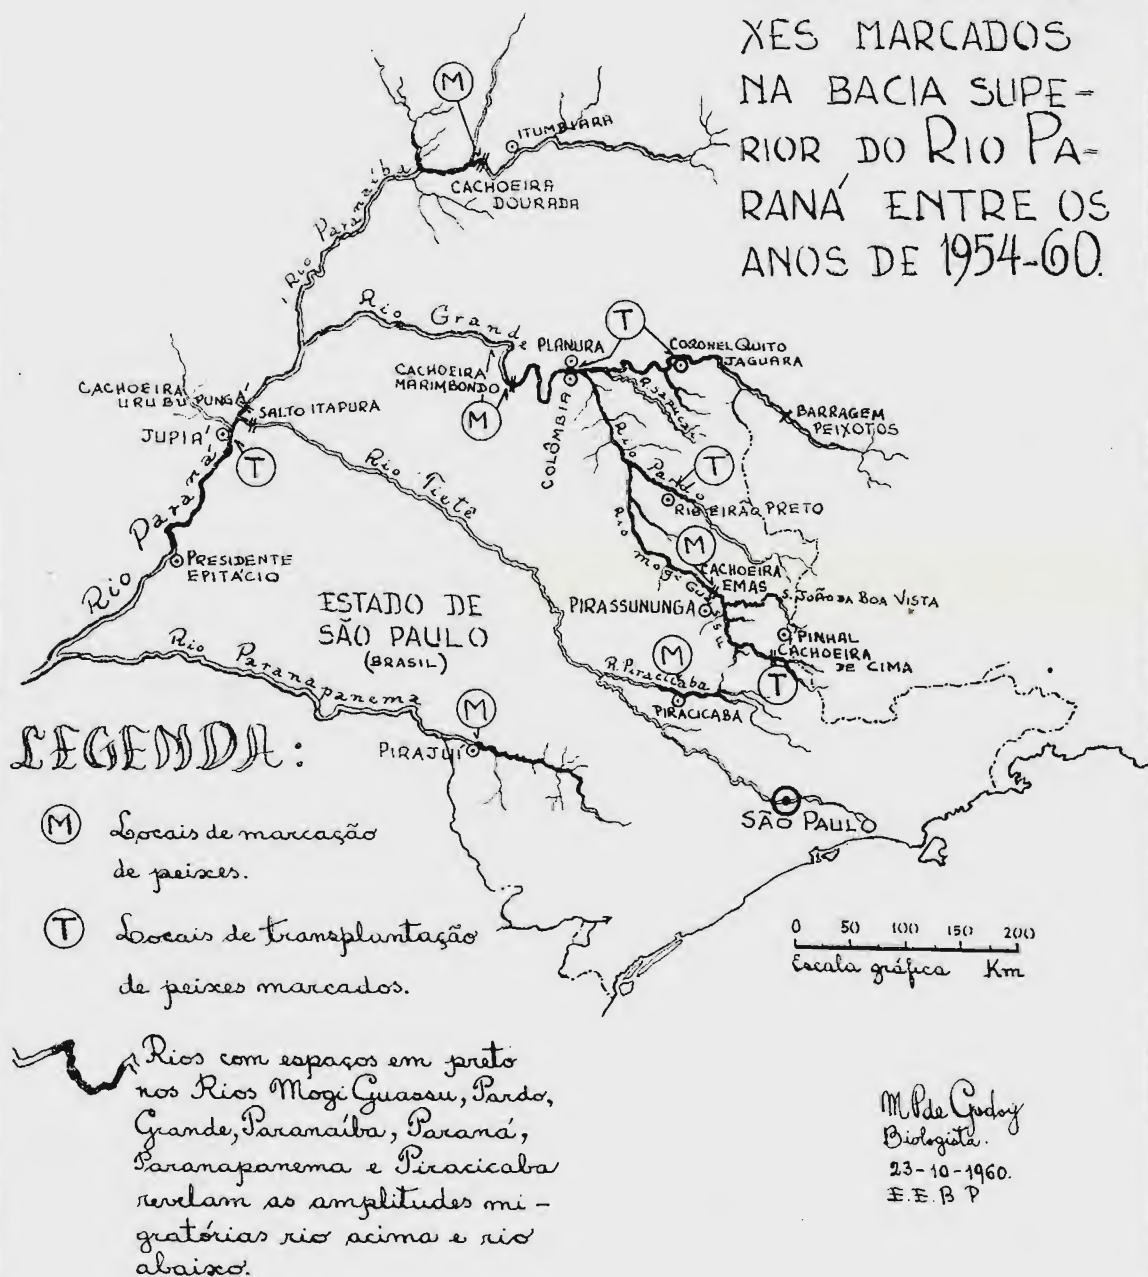 XES MARCADOS
NA BACIA SUPE-
RIOR DO RIO PA-
RANÁ ENTRE OS
ANOS DE 1954-60.
M
ITUMBIARA
CACHOEIRA
DOURADA
Rio Paranaíba
Rio Grande
T
PLANURA
CORONEL QUITO
JAGUARA
CACHOEIRA
MARIMBONDO
M
COLÔMBIA
R. SAPUCAÍ
BARRAGEM
PEIXOTOS
CACHOEIRA
URUBUPUNGÁ
SALTO ITAPURA
JUPIÁ
T
Rio Tietê
Rio Pardo
T
RIBEIRÃO PRETO
Rio Paraná
PRESIDENTE
EPITÁCIO
Rio Mogi Guassu
M
CACHOEIRA
EMAS
S. JOÃO DA BOA VISTA
PIRASSUNUNGA
PINHAL
CACHOEIRA
DE CIMA
T
ESTADO DE
SÃO PAULO
(BRASIL)
Rio Paranapanema
M
R. Piracicaba
PIRACICABA
M
PIRAJUÍ
SÃO PAULO
LEGENDA:
M Locais de marcação
de peixes.
T Locais de transplantação
de peixes marcados.
Rios com espaços em preto
nos Rios Mogi Guassu, Pardo,
Grande, Paranaíba, Paraná,
Paranapanema e Piracicaba
revelam as amplitudes mi-
gratórias rio acima e rio
abaixo.
0 50 100 150 200
Escala gráfica Km
M P de Godoy
Biologista.
23-10-1960.
E.E.B P